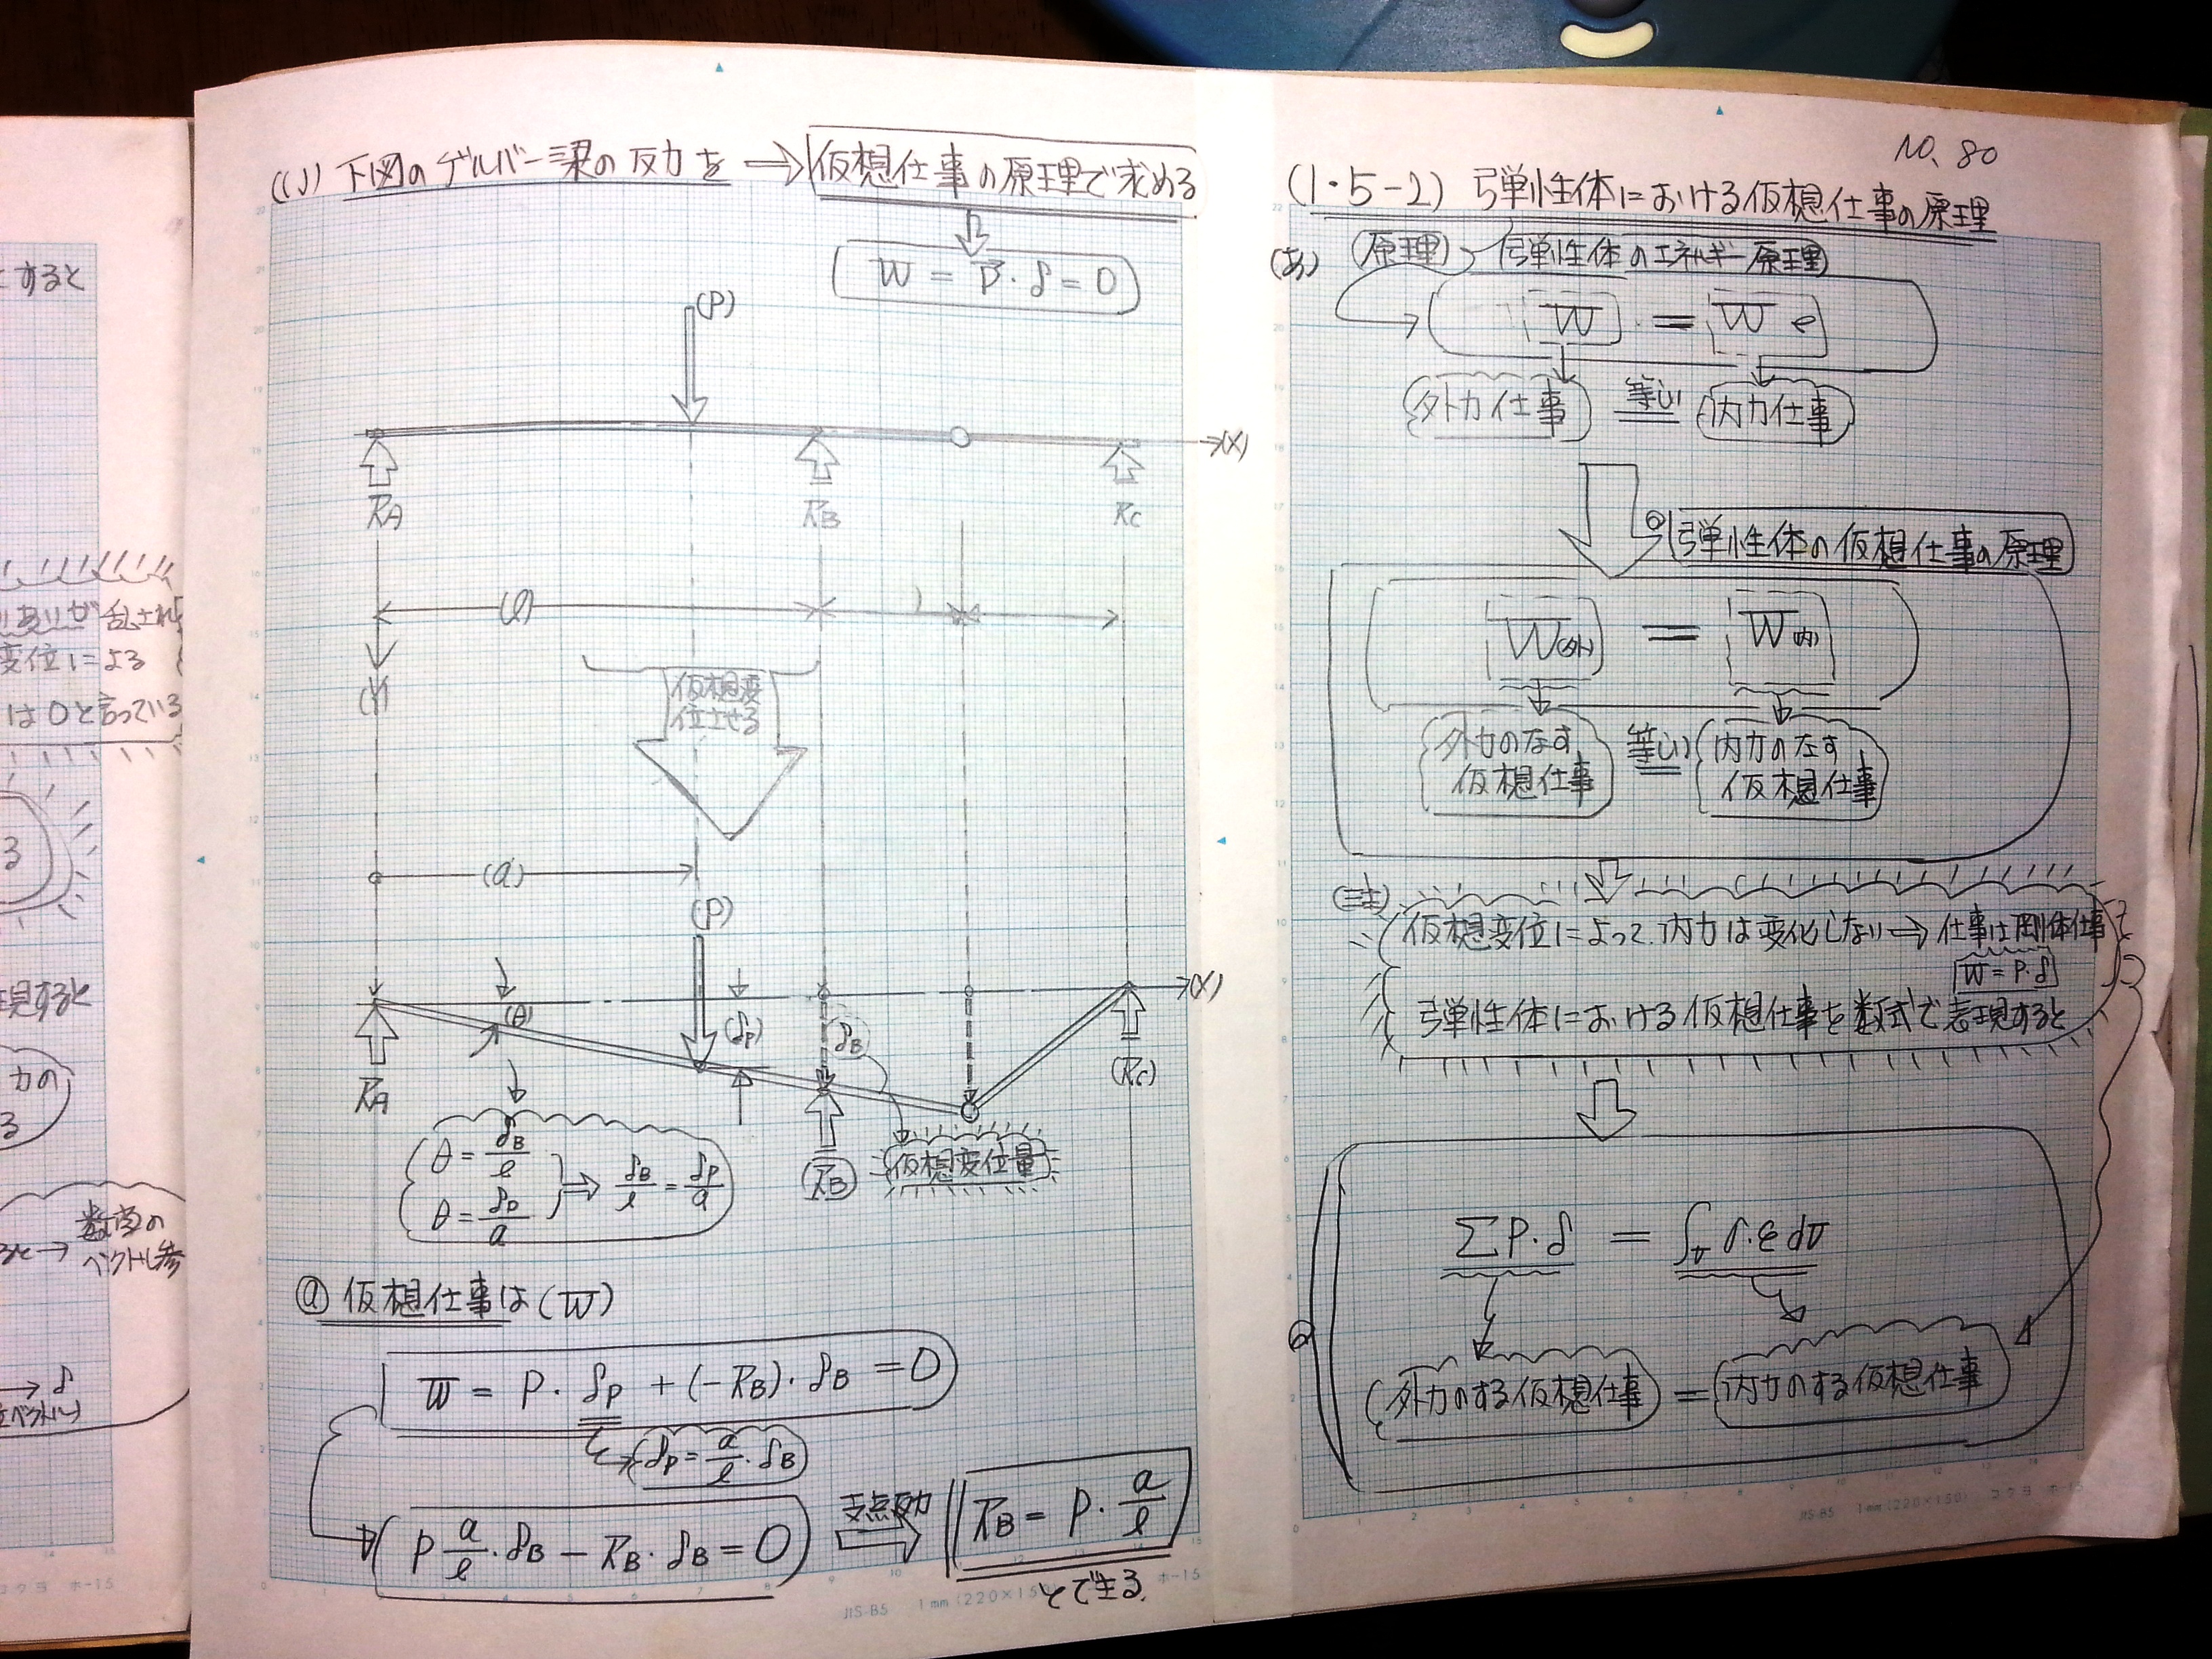 とすると
乱され
変位による
は0と言っている
る
表現すると
力の
る
数学の
ベクトル参
→ δ
((1) 下図のゲルバー梁の反力を ⇒ 仮想仕事の原理で求める
W = P・δ = 0
(P)
(X)
RA
RB
RC
(ℓ)
(Y)
仮想変
位させる
(a)
(P)
(X)
(θ)
(δP)
δB
(RC)
RA
(RB)
仮想変位量
θ = δB/ℓ
θ = δP/a
⇒ δB/ℓ = δP/a
ⓐ 仮想仕事は (W)
W = P・δP + (-RB)・δB = 0
δP = a/ℓ・δB
P a/ℓ・δB - RB・δB = 0
支点反力
RB = P・a/ℓ
とできる
JIS-B5 1mm (220×150) ホ-15
NO. 80
(1・5-2) 弾性体における仮想仕事の原理
(あ) (原理) 弾性体のエネルギー原理
W = We
外力仕事 等しい 内力仕事
弾性体の仮想仕事の原理
W(外) = W(内)
外力のなす
仮想仕事
等しい
内力のなす
仮想仕事
(注)
仮想変位によって、内力は変化しない → 仕事は剛体仕事
W = P・δ
弾性体における仮想仕事を数式で表現すると
ΣP・δ = ∫v σ・ε dv
(外力のする仮想仕事) = (内力のする仮想仕事
JIS-B5 1mm (220×150) コクヨ ホ-15
コクヨ ホ-15